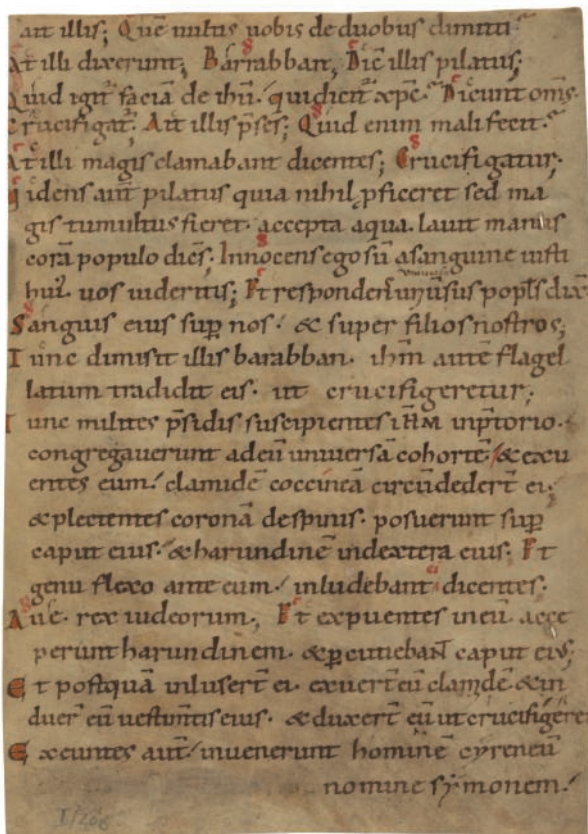 ait illis; Que͂ uultis uobis de duobus dimitti
At illi dixerunt; Barrabban, Dic̄ illis pilatus;
Quid igit᷑ faciā de ihū. qui dicit᷑ xp̄c. Dicunt om̄s.
Crucifigat᷑. Ait illis p̄ses; Quid enim mali fecit
At illi magis clamabant dicentes; Crucifigatur.
Uidens aut̄ pilatus quia nihil ꝓficeret sed ma
gis tumultus fieret. accepta aqua. lauit manus
corā populo dicēs; Innocens ego sū a sanguine iusti
hui᷒. uos uideritis; Et respondens uniuersus popl̄s dix̄
Sanguis eius sup̄ nos. & super filios nostros;
Tunc dimisit illis barabban. ihm̄ autē flagel
latum tradidit eis. ut crucifigeretur;
Tunc milites p̄sidis suscipientes IHM̄ in p̄torio.
congregauerunt ad eū uniuersā cohortē. & exu
entes eum. clamidē coccineā circūdeder̄t ei.
& plectentes coronā de spinis. posuerunt sup̄
caput eius. & harundinē in dextera eius. Et
genu flexo ante eum. inludebant dicentes.
Aue. rex iudeorum, Et expuentes in eū acce
perunt harundinem. & percutiebant caput eius.
Et postquā inluser̄t ei. exuer̄t eū clamide & in
duer̄ eū uestimtis eius. & duxer̄t eū ut crucifigerē
Exeuntes aut̄. inuenerunt hominē cyreneū
nomine symonem.
I/206